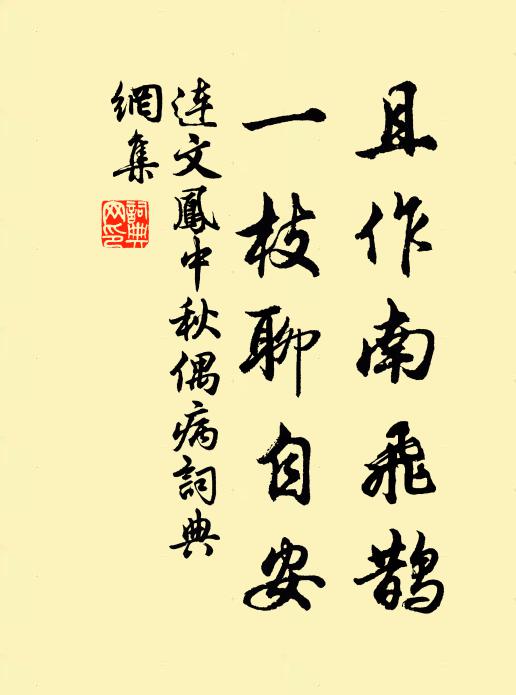 且作南飛鵲
一枝聊自安
連文鳳中秋偶病詞典
網集
詞典
网印